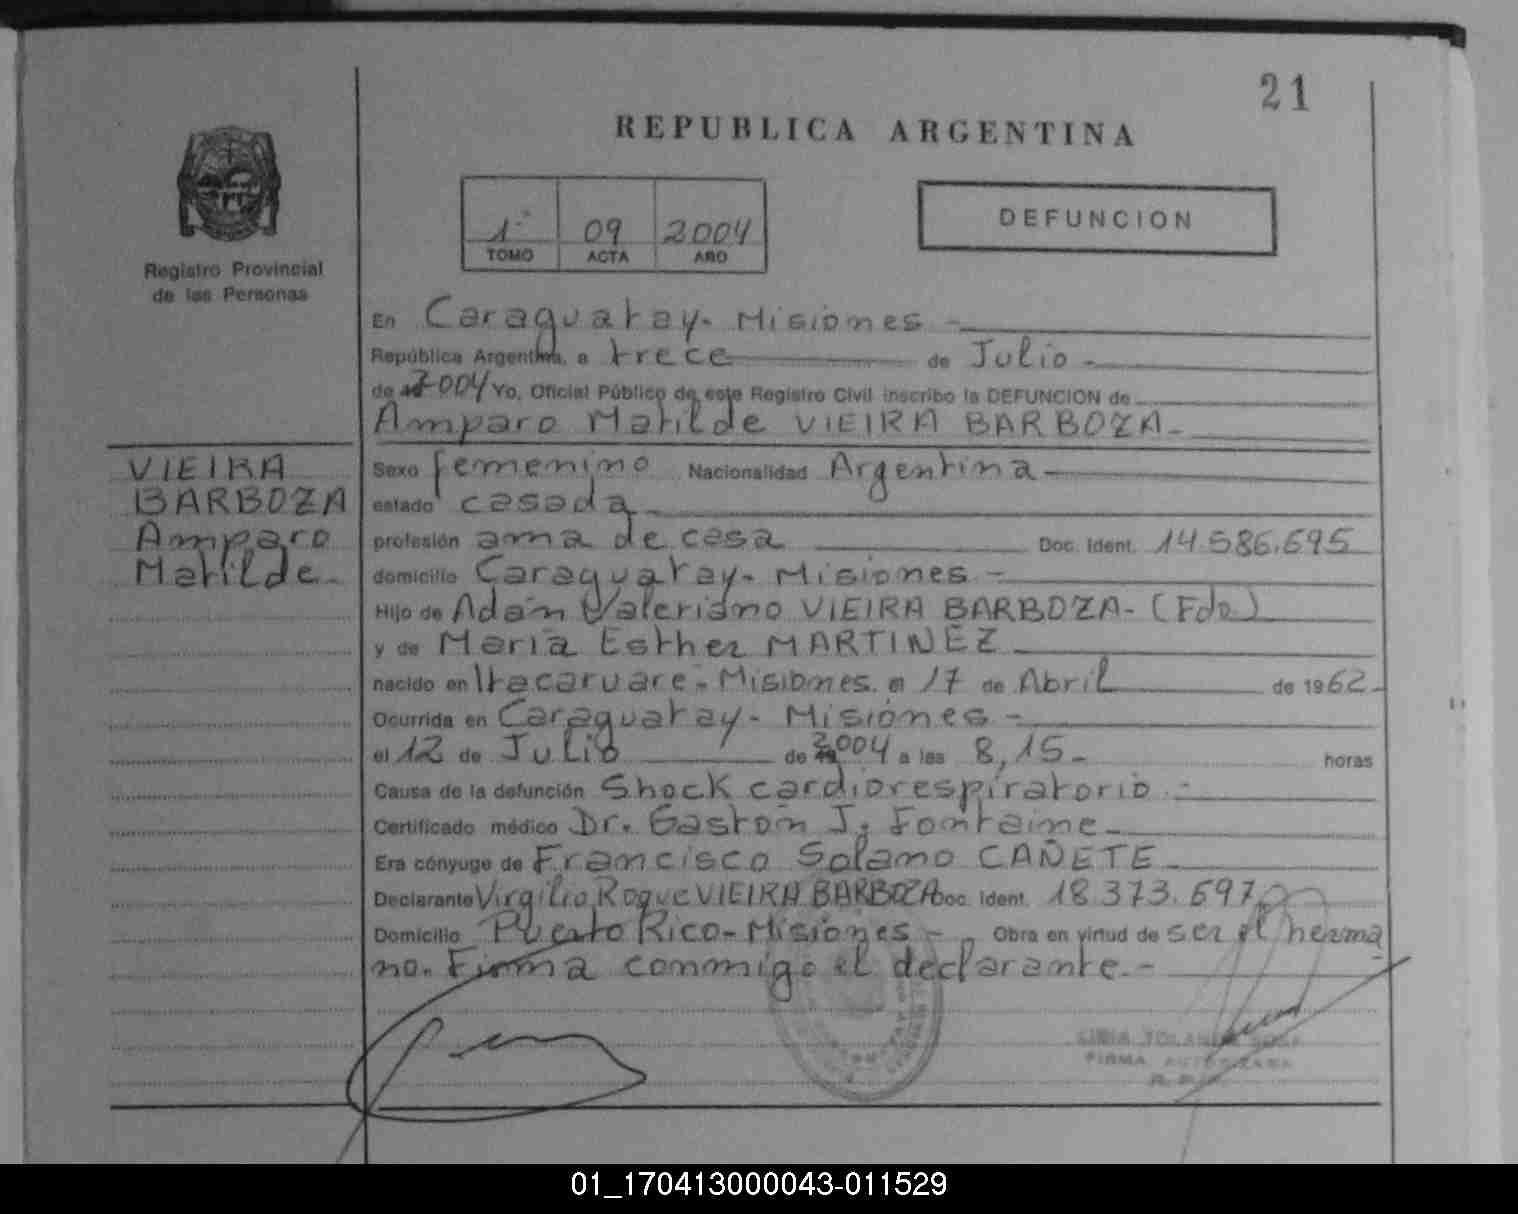 21
REPUBLICA ARGENTINA
1º 09 2004
TOMO ACTA AÑO
DEFUNCION
Registro Provincial
de las Personas
En Caraguatay- Misiones -
República Argentina, a trece de Julio -
de 2004 Yo, Oficial Público de este Registro Civil inscribo la DEFUNCION de
Amparo Matilde VIEIRA BARBOZA-
VIEIRA
BARBOZA
Amparo
Matilde-
Sexo femenino Nacionalidad Argentina -
estado casada
profesión ama de casa Doc. Ident. 14.586.695
domicilio Caraguatay- Misiones -
Hijo de Adán Valeriano VIEIRA BARBOZA- (Fdo)
y de María Esther MARTINEZ
nacido en Itacaruaré- Misiones. el 17 de Abril de 1962-
Ocurrida en Caraguatay- Misiones -
el 12 de Julio de 2004 a las 8,15- horas
Causa de la defunción Shock cardiorespiratorio -
Certificado médico Dr. Gastón J. Fontaine
Era cónyuge de Francisco Solano CAÑETE
Declarante Virgilio Roque VIEIRA BARBOZA Doc. Ident. 18.373.697
Domicilio Puerto Rico- Misiones - Obra en virtud de ser el herma
no. Firma conmigo el declarante.-
FIRMA AUTORIZADA
01_170413000043-011529